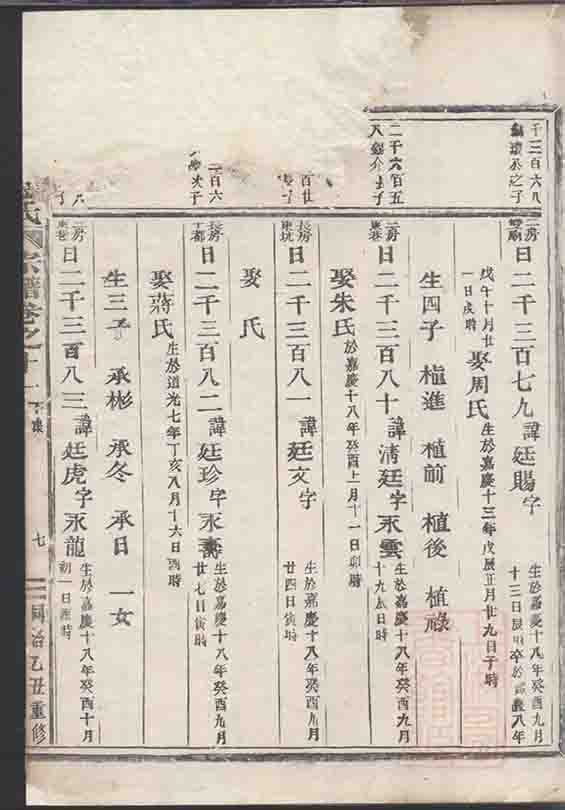 千三百六八
之子
二房
日二千三百七九 諱廷賜字
生於嘉慶十八年癸酉九月
十三日辰時卒於 八年
戊午十月廿
一日戌時
娶周氏 生於嘉慶十三年戊辰正月廿九日子時
生四子 植進 植前 植後 植祿
二千六百五
八 介長子
二房
東巷
日二千三百八十 諱清廷字永雲
生於嘉慶十八年癸酉九月
十九辰日時
娶朱氏 於嘉慶十八年癸酉十一月十一日卯時
百廿
子
長房
東坑
日二千三百八一 諱廷文字
生於嘉慶十八年癸酉九月
廿四日寅時
娶 氏
二百六
次子
長房
下都
日二千三百八二 諱廷珍字永壽
生於嘉慶十八年癸酉九月
廿七日寅時
娶蔣氏 生於道光七年丁亥八月十六日酉時
生三子 承彬 承冬 承日 一女
二房
東巷
日二千三百八三 諱廷虎字永龍
生於嘉慶十八年癸酉十月
初一日酉時
氏宗譜卷之十一
七
同治乙丑重修